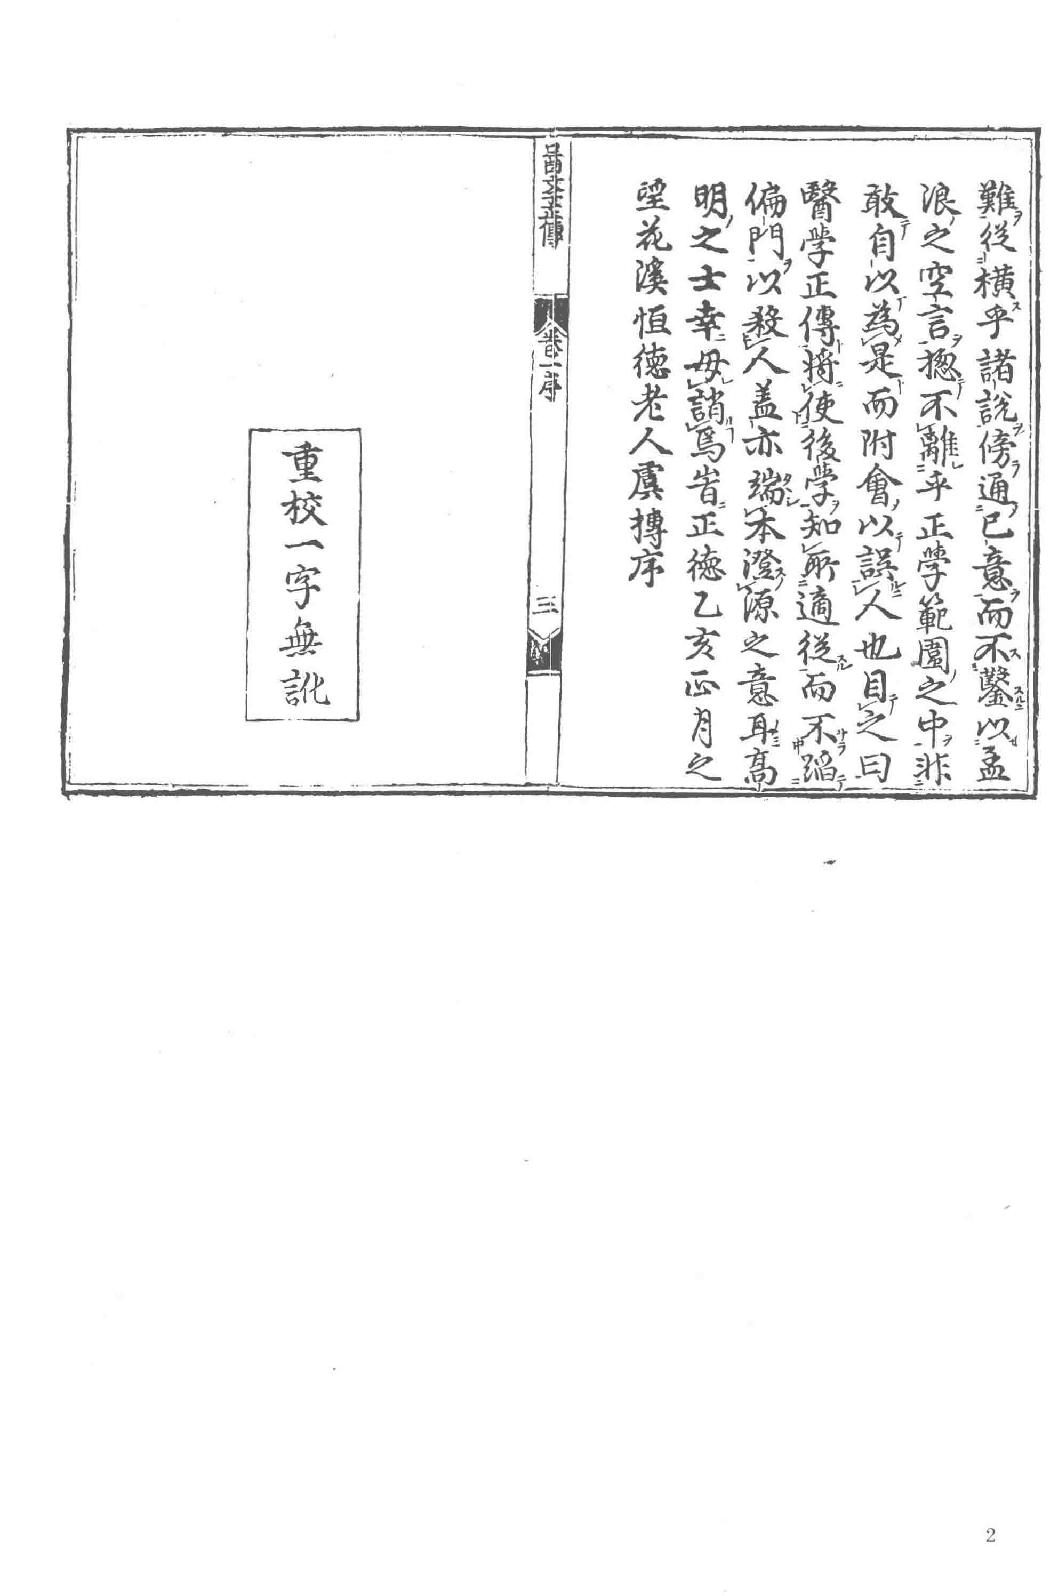 難從橫乎諸說傍通已意而不鑿以孟
浪之空言摠不離乎正學範圍之中非
敢自以為是而附會以誤人也目之曰
醫學正傳將使後學知所適從而不蹈
偏門以殺人蓋亦端本澄源之意耳高
明之士幸毋誚焉旹正德乙亥正月之
望花溪恒德老人虞摶序
卷一序
三
重校一字無訛
2